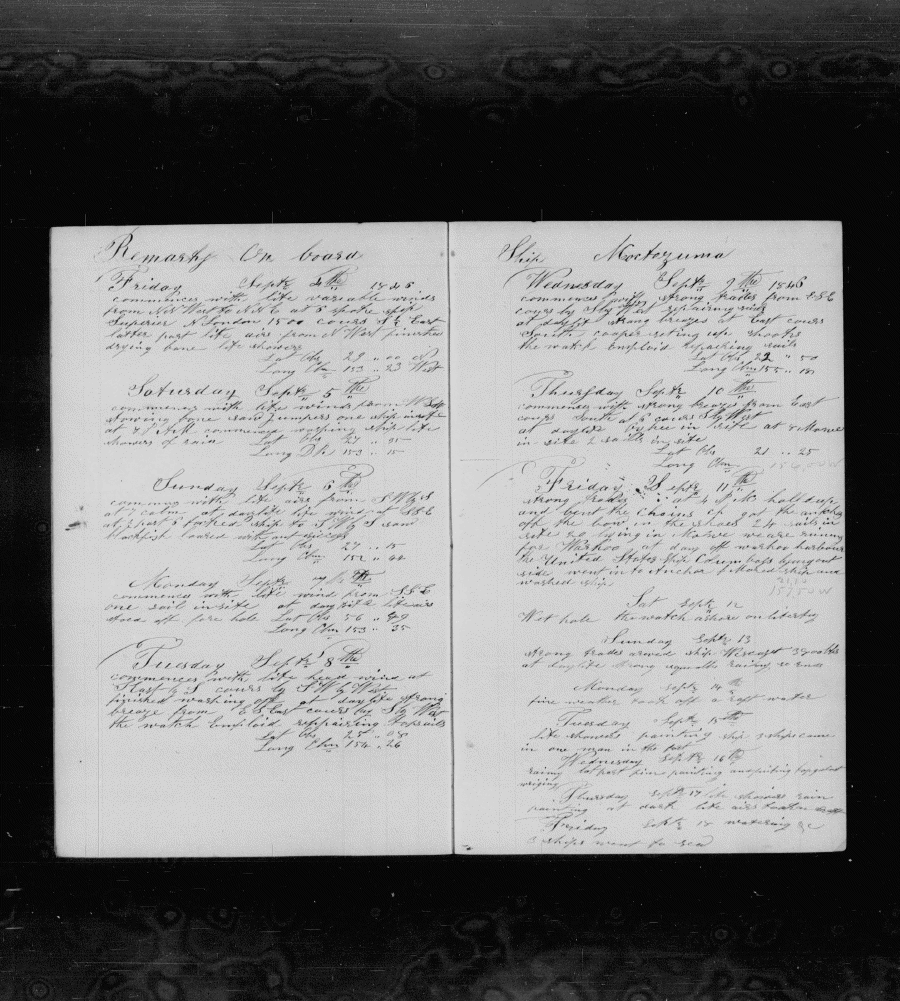 Remarks On board
Friday Septr 4th 1846
commences with lite variable winds
from N N West to N N E at 6 spoke ship
Superior N London 1500 cours S E East
latter part lite airs from N West finished
drying bone lite showers
Lat Obs 29 " 00 N
Long Chm 153 " 23 West
Saturday Septr 5th
commences with lite winds from
stowing bone saw jumpers one ship insite
at 8 AM commenced washing ship lite
showers of rain Lat Obs 27 " 35
Long DR 153 " 15
Sunday Septr 6th
commences with lite airs from S W by S
at 7 calm at daylite lite wind at S S E
at past 6 tacked ship to S W by S saw
blackfish loared without success
Lat Obs 27 " 15
Long Chm 152 " 44
Monday Septr 7th
commences with lite wind from S S E
one sail insite at daylite lite airs
Lat Obs 26 " 49
Long Chm 153 " 35
Tuesday Septr 8th
commences with lite head wind at
S East by S cours by S W by West
finished washing off at daylite strong
breeze from E S East cours by S by West
the watch Employd reppairing topsails
Lat Obs 25 " 08
Long Chm 154 " 26
Ship Moctozuma
Wednesday Septr 9th 1846
commences with strong trades from E S E
cours by S by West repairing sails
at daylite strong trades at East cours
South cooper seting up shooks
the watch Employd repairing sails
Lat Obs 22 " 50
Long Chm 155 " 10
Thursday Septr 10th
commences with strong breeze from East
cours South at 5 cours S by West
at daylite in site at 8 Mowee
in site 2 sails in site
Lat Obs 21 " 25
Long Chm
Friday Septr 11th
strong trades at 4 P M hald up
and bent the Chains & got the anker
off the bow in the shoes 24 sails in
site & lying in Mowe we are runing
for Wahoo at day off wahoo harbour
the United States Ship Columbus lying out
side went in to Anchor & Mored ship and
washed ship
Sat Septr 12
Wet hole the watch ashore on liberty
Sunday Septr 13
strong trades arived ship Wiscast 38
at daylite strong squalls rainy so ends
Monday Septr 14th
fine weather took off a raft water
Tuesday Septr 15th
lite showers painting ship 2 ships came
in one man in the
Wednesday Septr 16th
rainy lat part fine painting
Thursday Septr 17 lite showers rain
painting at dark lite airs
Friday Septr 18 watering &c
3 ships went to sea